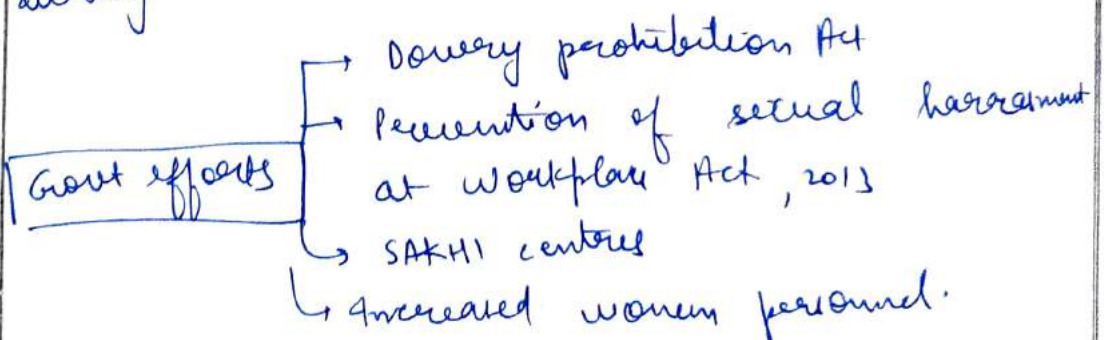 Govt efforts
→ Dowery prohibition Act
→ Prevention of sexual harrasment
at workplace Act, 2013
→ SAKHI centres
→ Increased women personnel.